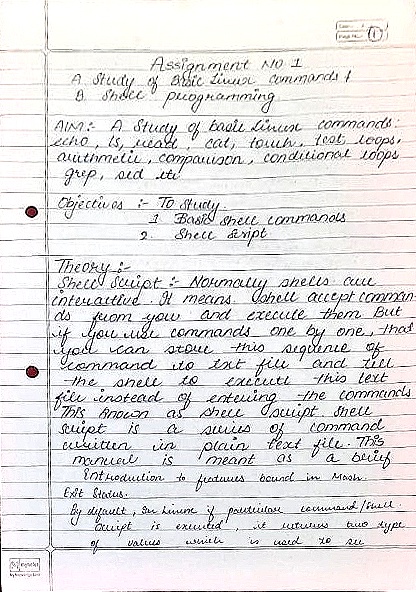 1
Assignment No 1
A. Study of Basic Linux commands &
B. Shell programming
AIM:- A Study of basic Linux commands:
echo, ls, read, cat, touch, test, loops,
arithmetic, comparison, conditional loops
grep, sed etc
Objectives :- To study.
1. Basic shell commands
2. Shell Script
Theory :-
Shell Script :- Normally shells are
interactive. It means shell accept comman-
ds from you and execute them But
if you use commands one by one, that
you can store this sequence of
command to txt file and tell
the shell to execute this text
file instead of entering the commands
This known as shell script. Shell
script is a series of command
written in plain text file. This
manual is meant as a brief
Introduction to features bound in
Exit Status.
By default, In Linux if particular command/shell
script is executed, it returns two type
of values which is used to see